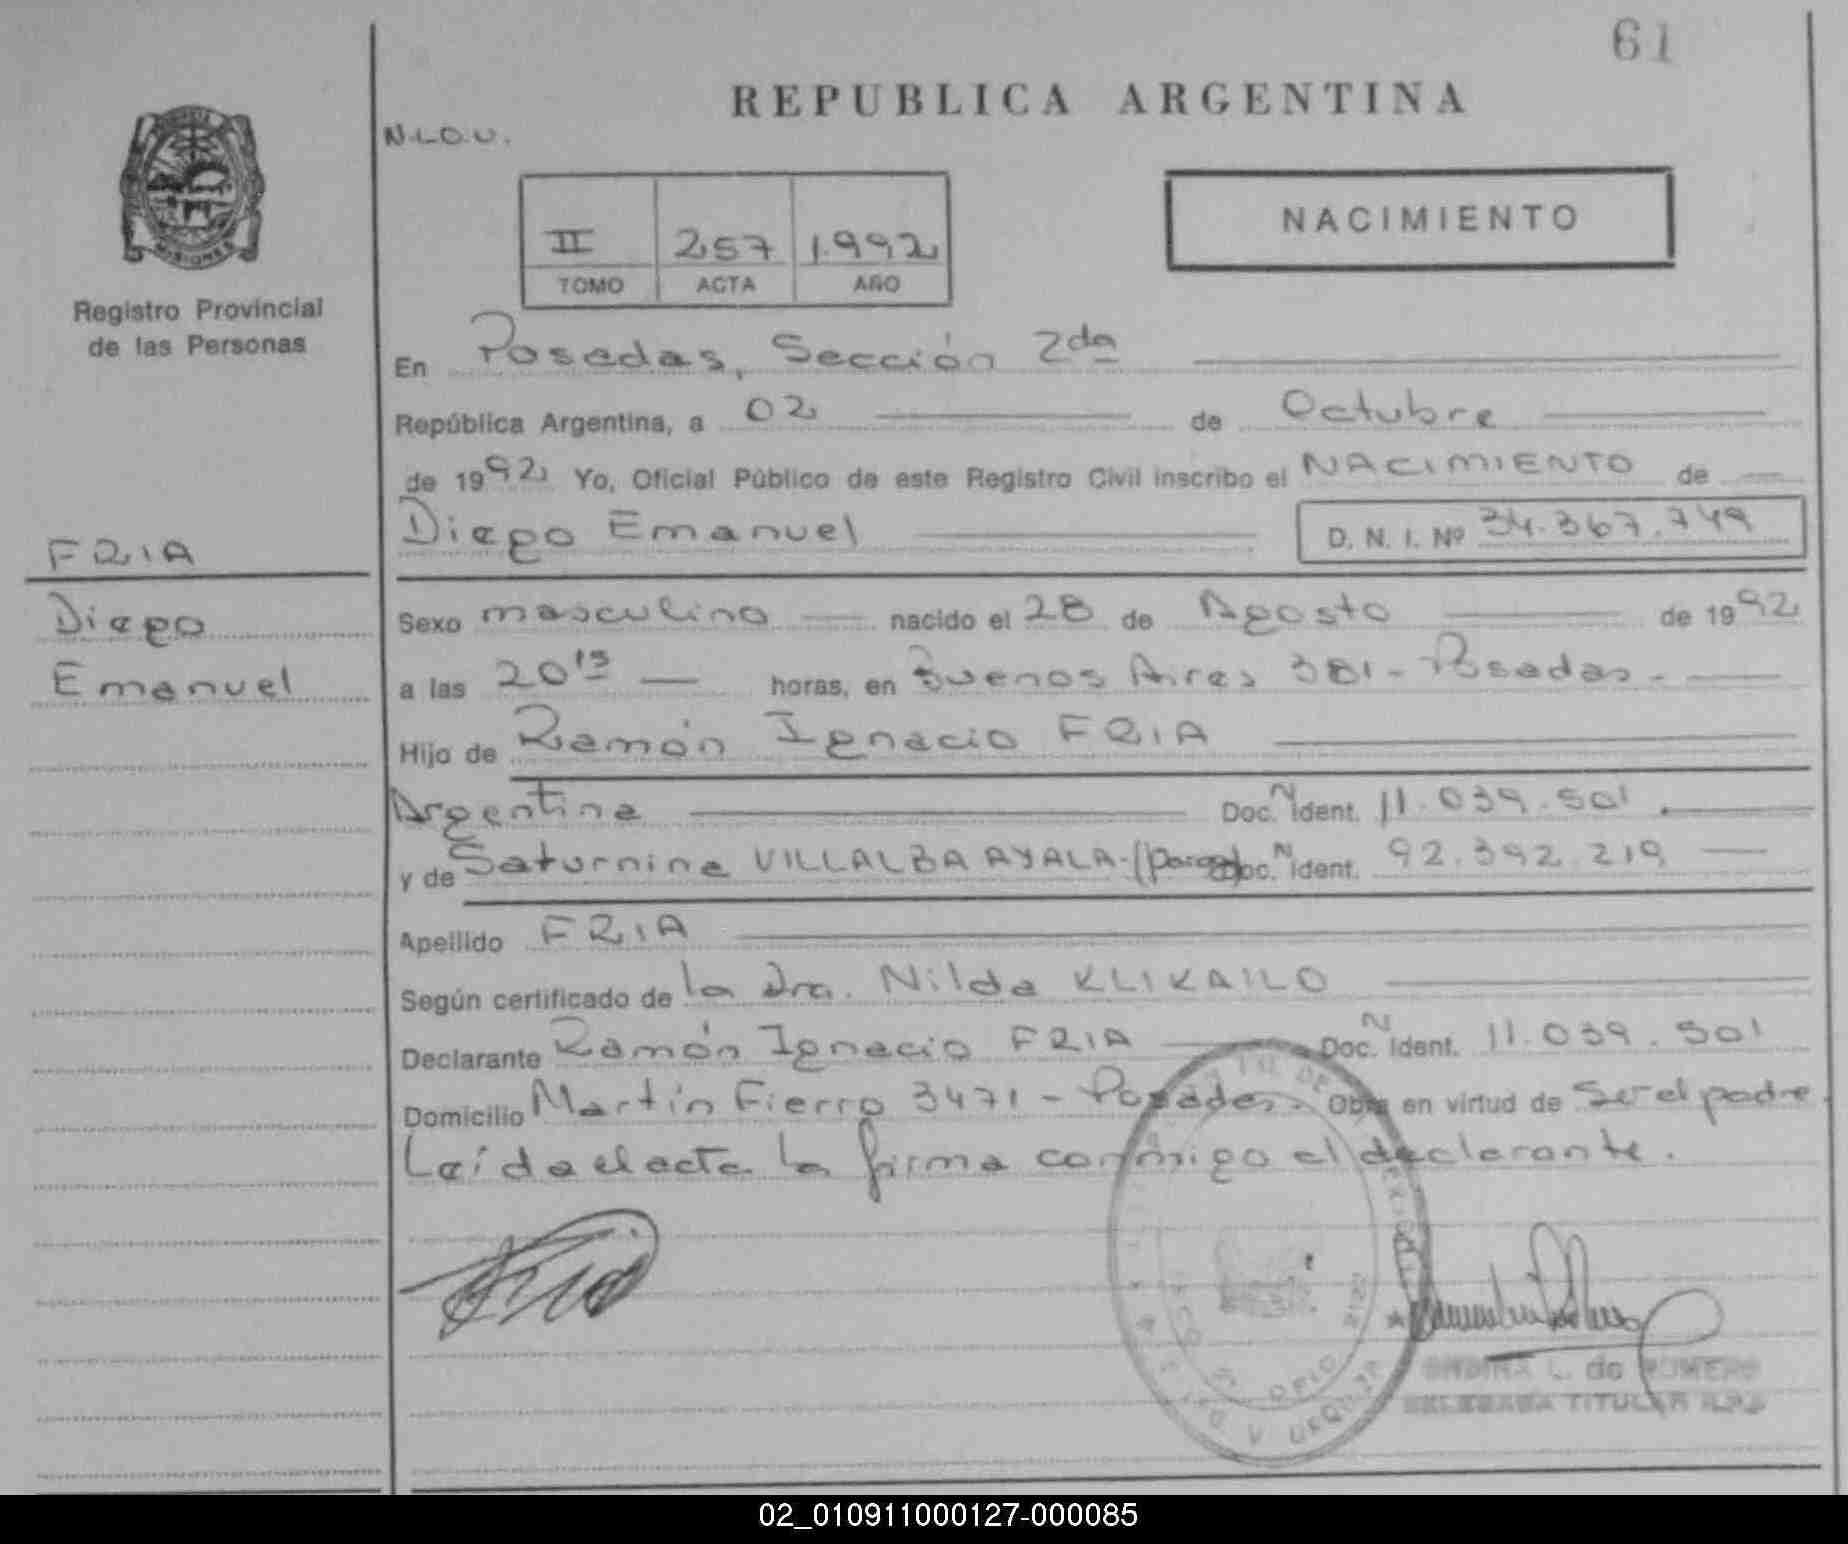 61
REPUBLICA ARGENTINA
N.L.O.U.
NACIMIENTO
II 257 1.992
TOMO ACTA AÑO
MISIONES
Registro Provincial
de las Personas
En Posadas, Sección 2da
República Argentina, a 02 de Octubre
de 1992 Yo, Oficial Público de este Registro Civil inscribo el NACIMIENTO de
Diego Emanuel D. N. I. Nº 34.367.749
FRIA
Diego
Emanuel
Sexo masculino nacido el 28 de Agosto de 1992
a las 20 15 horas, en Buenos Aires 381 - Posadas.-
Hijo de Ramón Ignacio FRIA
Argentina Doc. N Ident. 11.039.501.
y de Saturnina VILLALBA AYALA- Doc. N Ident. 92.392.219
Apellido FRIA
Según certificado de la Dra. Nilda KLIKAILO
Declarante Ramón Ignacio FRIA Doc. N Ident. 11.039.501
Domicilio Martín Fierro 3471 - Posadas. Obra en virtud de Ser el padre.
Leída el acta la firma conmigo el declarante.
L. de ROMERO
TITULAR
02_010911000127-000085